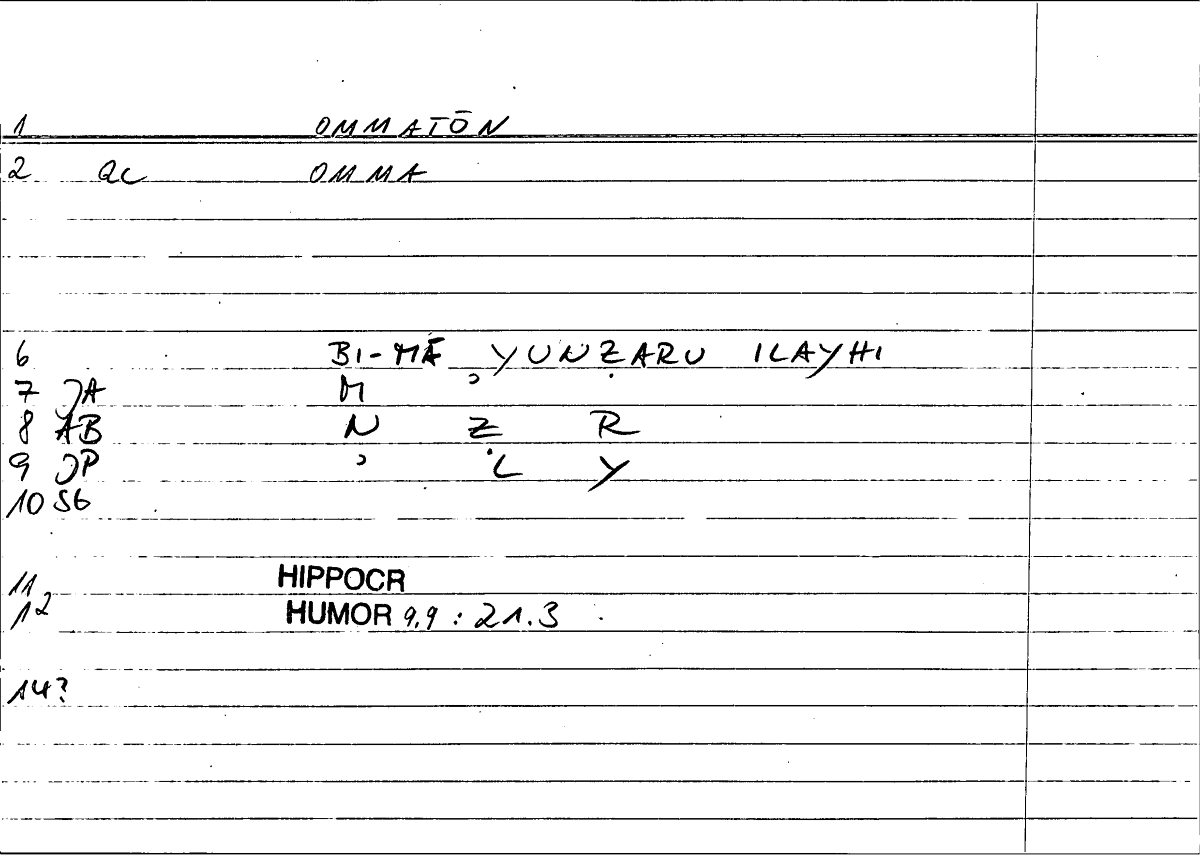 1 OMMATŌN
2 QC OMMA
6 BI-MĀ YUNẒARU ʾILAYHI
7 JA M
8 AB N Ẓ R
9 JP ʾ L Y
10 SB
11 HIPPOCR
12 HUMOR 9,9 : 21.3
14?